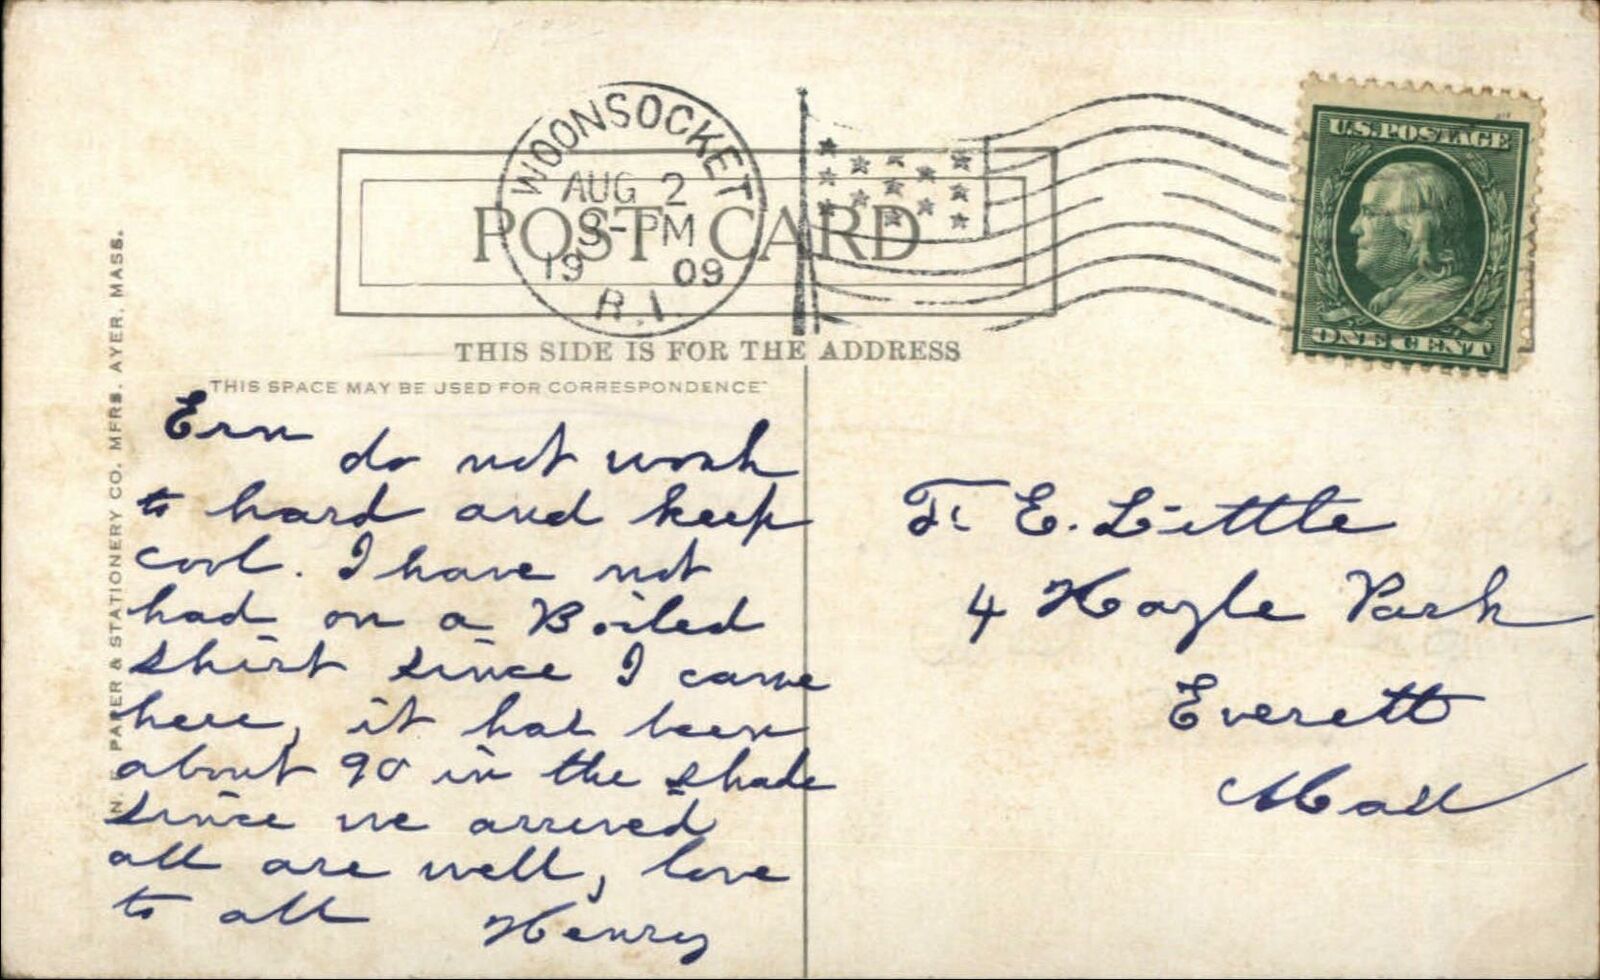 WOONSOCKET
AUG 2
3-PM
19 09
R.I.
U.S. POSTAGE
ONE CENT
POST CARD
THIS SIDE IS FOR THE ADDRESS
THIS SPACE MAY BE USED FOR CORRESPONDENCE
N. E. PAPER & STATIONERY CO. MFRS. AYER, MASS.
Ern
do not work
to hard and keep
cool. I have not
had on a Boiled
shirt since I came
here, it has been
about 90 in the shade
since we arrived
all are well, love
to all Henry
E. Little
4 Hoyle Park
Everett
Mass